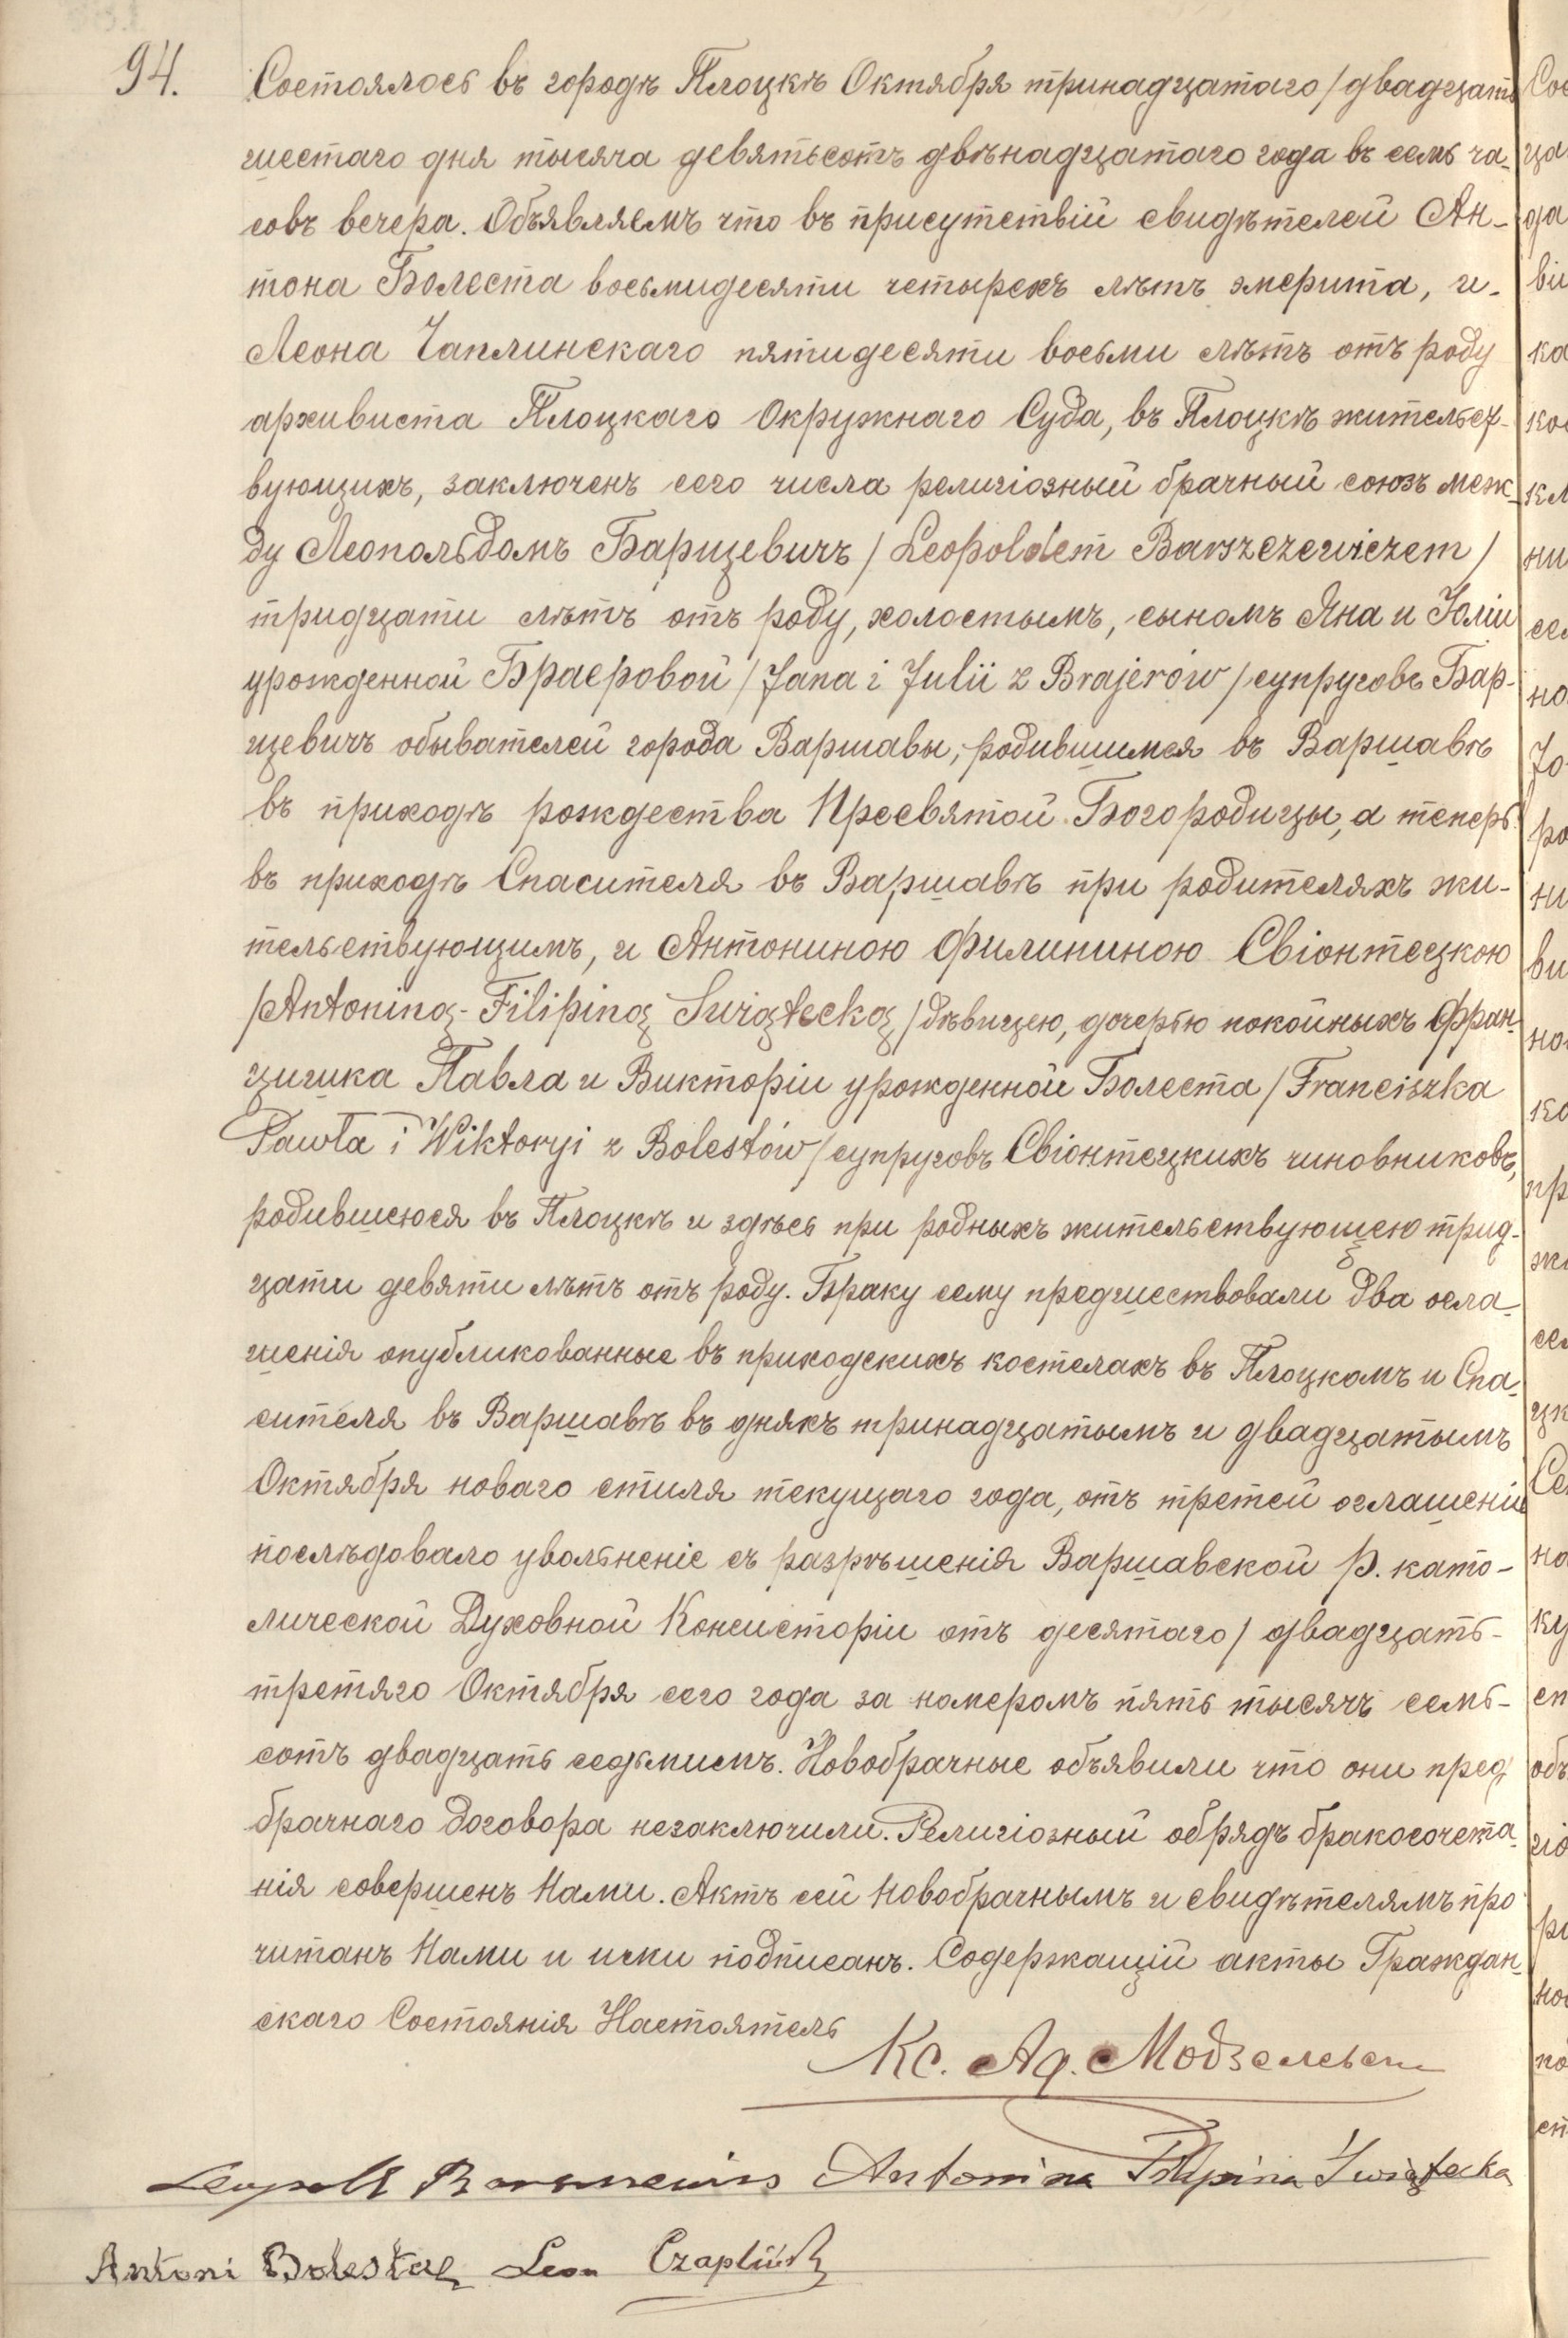 94.
Состоялось въ городѣ Плоцкѣ Октября тринадцатаго / двадцать
шестаго дня тысяча девятьсотъ двѣнадцатаго года въ семь ча-
совъ вечера. Объявляемъ что въ присутствій свидѣтелей Ан-
тона Болеста восьмидесяти четырехъ лѣтъ эмерита, и-
Леона Чаплинскаго пятидесяти восьми лѣтъ отъ роду
архивиста Плоцкаго Окружнаго Суда, въ Плоцкѣ жительст-
вующихъ, заключенъ сего числа религіозный брачный союзъ меж-
ду Леопольдомъ Барщевичъ / Leopoldem Barszczewiczem /
тридцати лѣтъ отъ роду, холостымъ, сыномъ Яна и Юліи
урожденной Браеровой / Jana i Julii z Brajerów / супруговъ Бар-
щевичъ обывателей города Варшавы, родившимся въ Варшавѣ
въ приходѣ рождества Пресвятой Богородицы, а теперь
въ приходѣ Спасителя въ Варшавѣ при родителяхъ жи-
тельствующимъ, и Антониною Филипиною Свіонтецкою
/ Antoniną-Filipiną Swiątecką / дѣвицею, дочерью покойныхъ Фран-
цишка Павла и Викторіи урожденной Болеста / Franciszka
Pawła i Wiktoryi z Bolestów / супруговъ Свіонтецкихъ чиновниковъ,
родившеюся въ Плоцкѣ и здѣсь при родныхъ жительствующею трид-
цати девяти лѣтъ отъ роду. Браку сему предшествовали два огла-
шенія опубликованные въ приходскихъ костелахъ въ Плоцкомъ и Спа-
сителя въ Варшавѣ въ дняхъ тринадцатымъ и двадцатымъ
Октября новаго стиля текущаго года, отъ третей оглашеніи
послѣдовало увольненіе съ разрѣшенія Варшавской р. като-
лической Духовной Консисторіи отъ десятаго / двадцать-
третяго Октября сего года за номеромъ пять тысячъ семь-
сотъ двадцать седьмимъ. Новобрачные объявили что они пред
брачнаго договора незаключили. Религіозный обрядъ бракосочета-
нія совершенъ Нами. Актъ сей Новобрачнымъ и свидѣтелямъ про
читанъ Нами и ими подписанъ. Содержащій акты Граждан-
скаго Состоянія Настоятель
Кс. Ад. Модзелевски
Leopold Barszczewicz Antonina Filipina Swiątecka
Antoni Bolesta Leon Czapliński